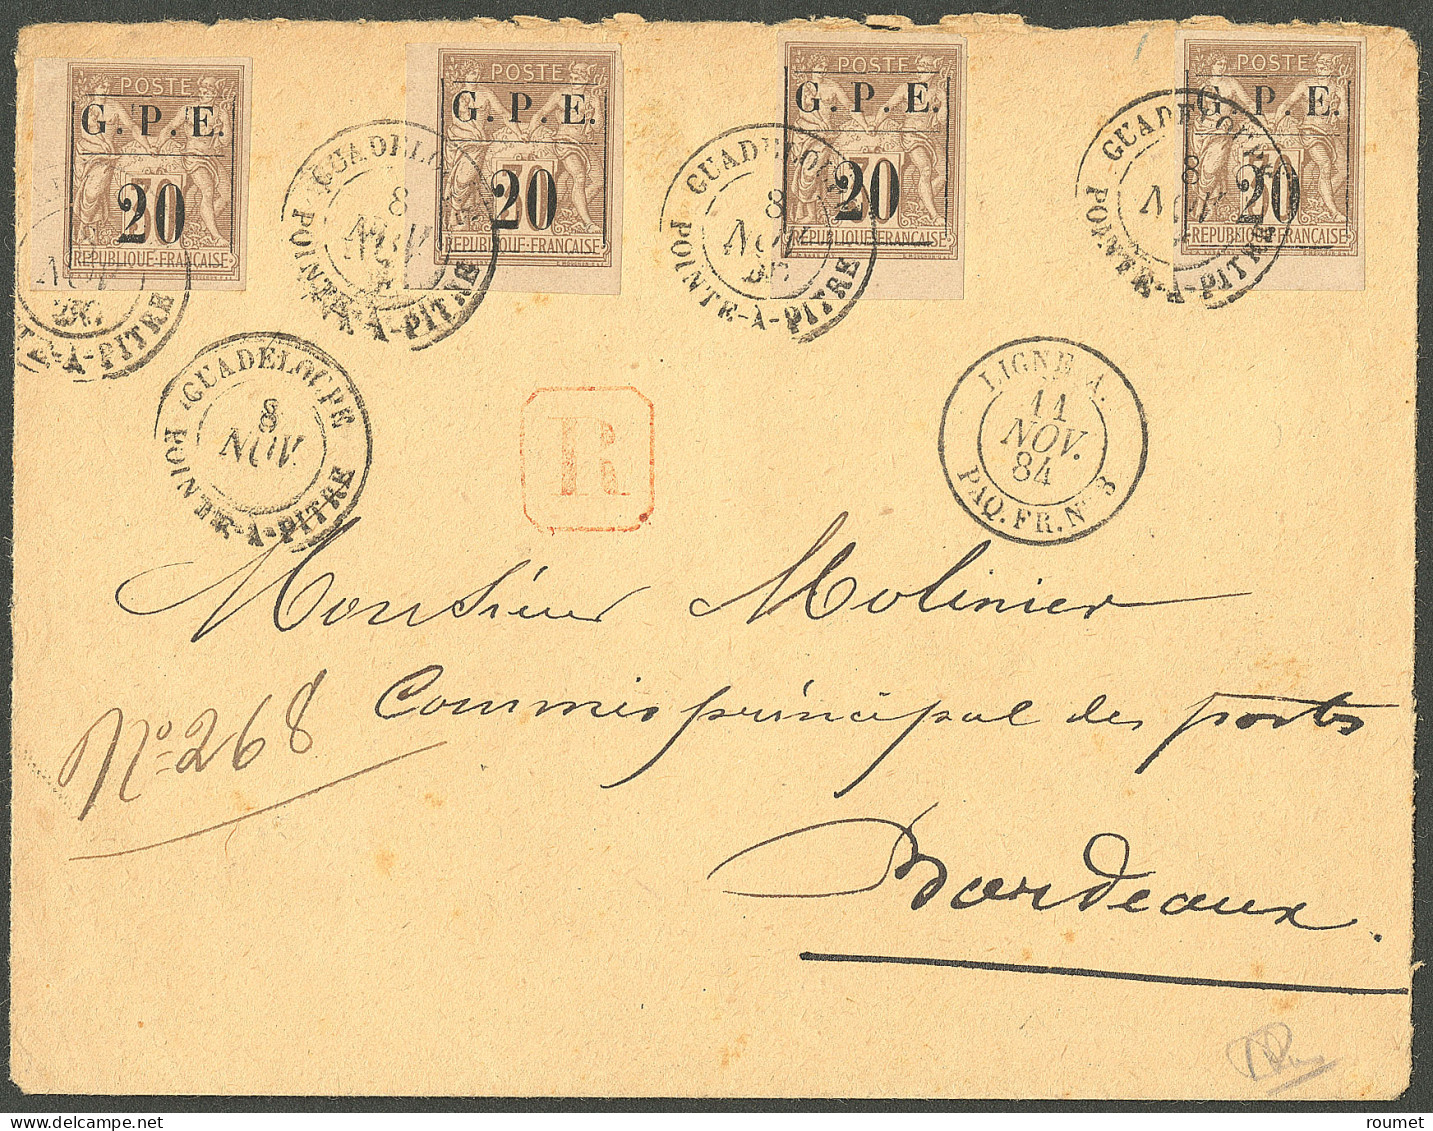 POSTE
G. P. E.
20
REPUBLIQUE-FRANCAISE
POSTE
G. P. E.
20
REPUBLIQUE-FRANCAISE
POSTE
G. P. E.
20
REPUBLIQUE-FRANCAISE
POSTE
G. P. E.
20
REPUBLIQUE-FRANCAISE
NOV.
POINTE-A-PITRE
GUADELOUPE
8
NOV.
POINTE-A-PITRE
GUADELOUPE
8
NOV.
POINTE-A-PITRE
GUADELOUPE
8
NOV.
POINTE-A-PITRE
GUADELOUPE
8
NOV.
POINTE-A-PITRE
R
LIGNE A.
11
NOV.
84
PAQ. FR. N° 3
Monsieur Molinier
Commis principal des postes
N° 268
Bordeaux.
www.roumet.com